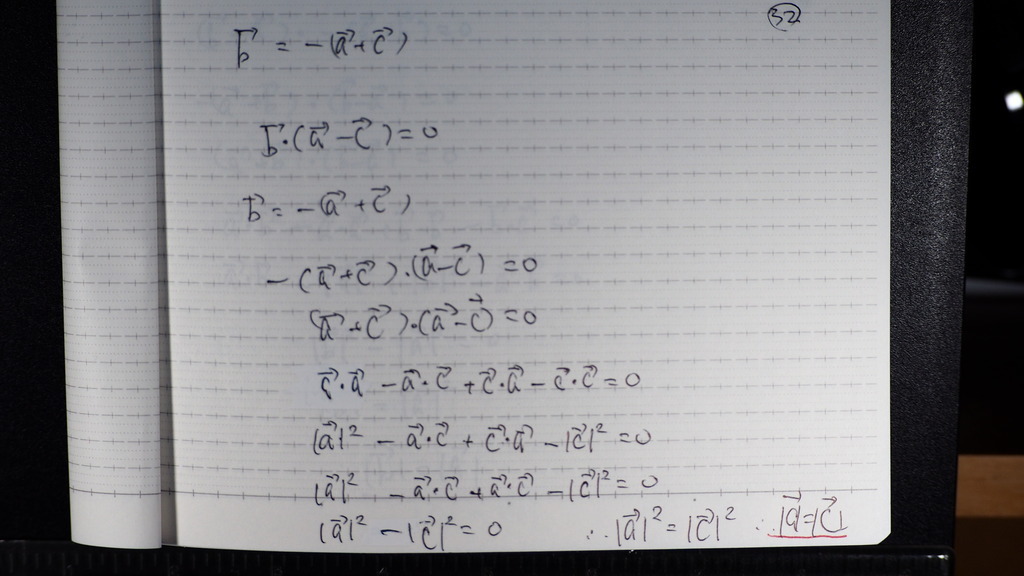 32
b⃗ = -(a⃗+c⃗)
b⃗・(a⃗-c⃗)=0
b⃗=-(a⃗+c⃗)
-(a⃗+c⃗)・(a⃗-c⃗)=0
(a⃗+c⃗)・(a⃗-c⃗)=0
a⃗・a⃗-a⃗・c⃗+c⃗・a⃗-c⃗・c⃗=0
|a⃗|²-a⃗・c⃗+c⃗・a⃗-|c⃗|²=0
|a⃗|²-a⃗・c⃗+a⃗・c⃗-|c⃗|²=0
|a⃗|²-|c⃗|²=0 ∴|a⃗|²=|c⃗|² ∴|a⃗|=|c⃗|